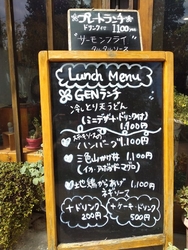 プレートランチ
ドリンク付 1100円
サーモンフライ
タルタルソース
Lunch Menu
GENランチ
冷しとり天うどん
(ミニデザート・ドリンク付)
1,100円
ハンバーグ 1,100円
三色山かけ丼 1,100円
(イカ・アボカド・マグロ)
地鶏からあげ 1,100円
ネギソース
+ドリンク
200円
+ケーキ・ドリンク
500円